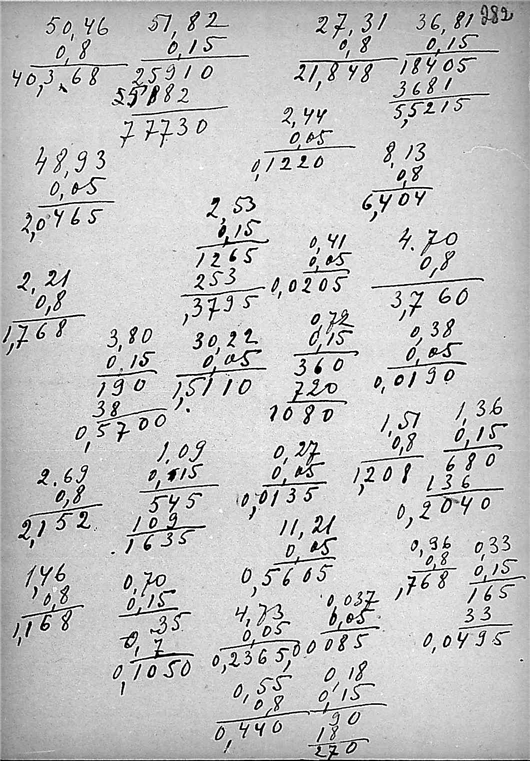 282
50,46
0,8
40,368
51,82
0,15
25910
5182
77730
27,31
0,8
21,848
36,81
0,15
18405
3681
5,5215
2,44
0,05
0,1220
48,93
0,05
2,0465
8,13
0,8
6,404
2,53
0,15
1265
253
,3795
0,41
0,05
0,0205
4.70
0,8
3,760
2,21
0,8
1,768
3,80
0.15
190
38
0,5700
30,22
0,05
1,5110
0,72
0,15
360
720
1080
0,38
0,05
0,0190
2.69
0,8
2,152
1,09
0,15
545
109
1635
0,27
0,05
0,0135
1,51
0,8
1,208
1,36
0,15
680
136
0,2040
11,21
0,05
0,5605
0,96
0,8
,768
0,33
0,15
165
33
0,0495
1,46
0,8
1,168
0,70
0,15
35
0,7
0,1050
4,73
0,05
0,2365
0,037
0,05
0,0085
0,55
0,8
0,440
0,18
0,15
90
18
270